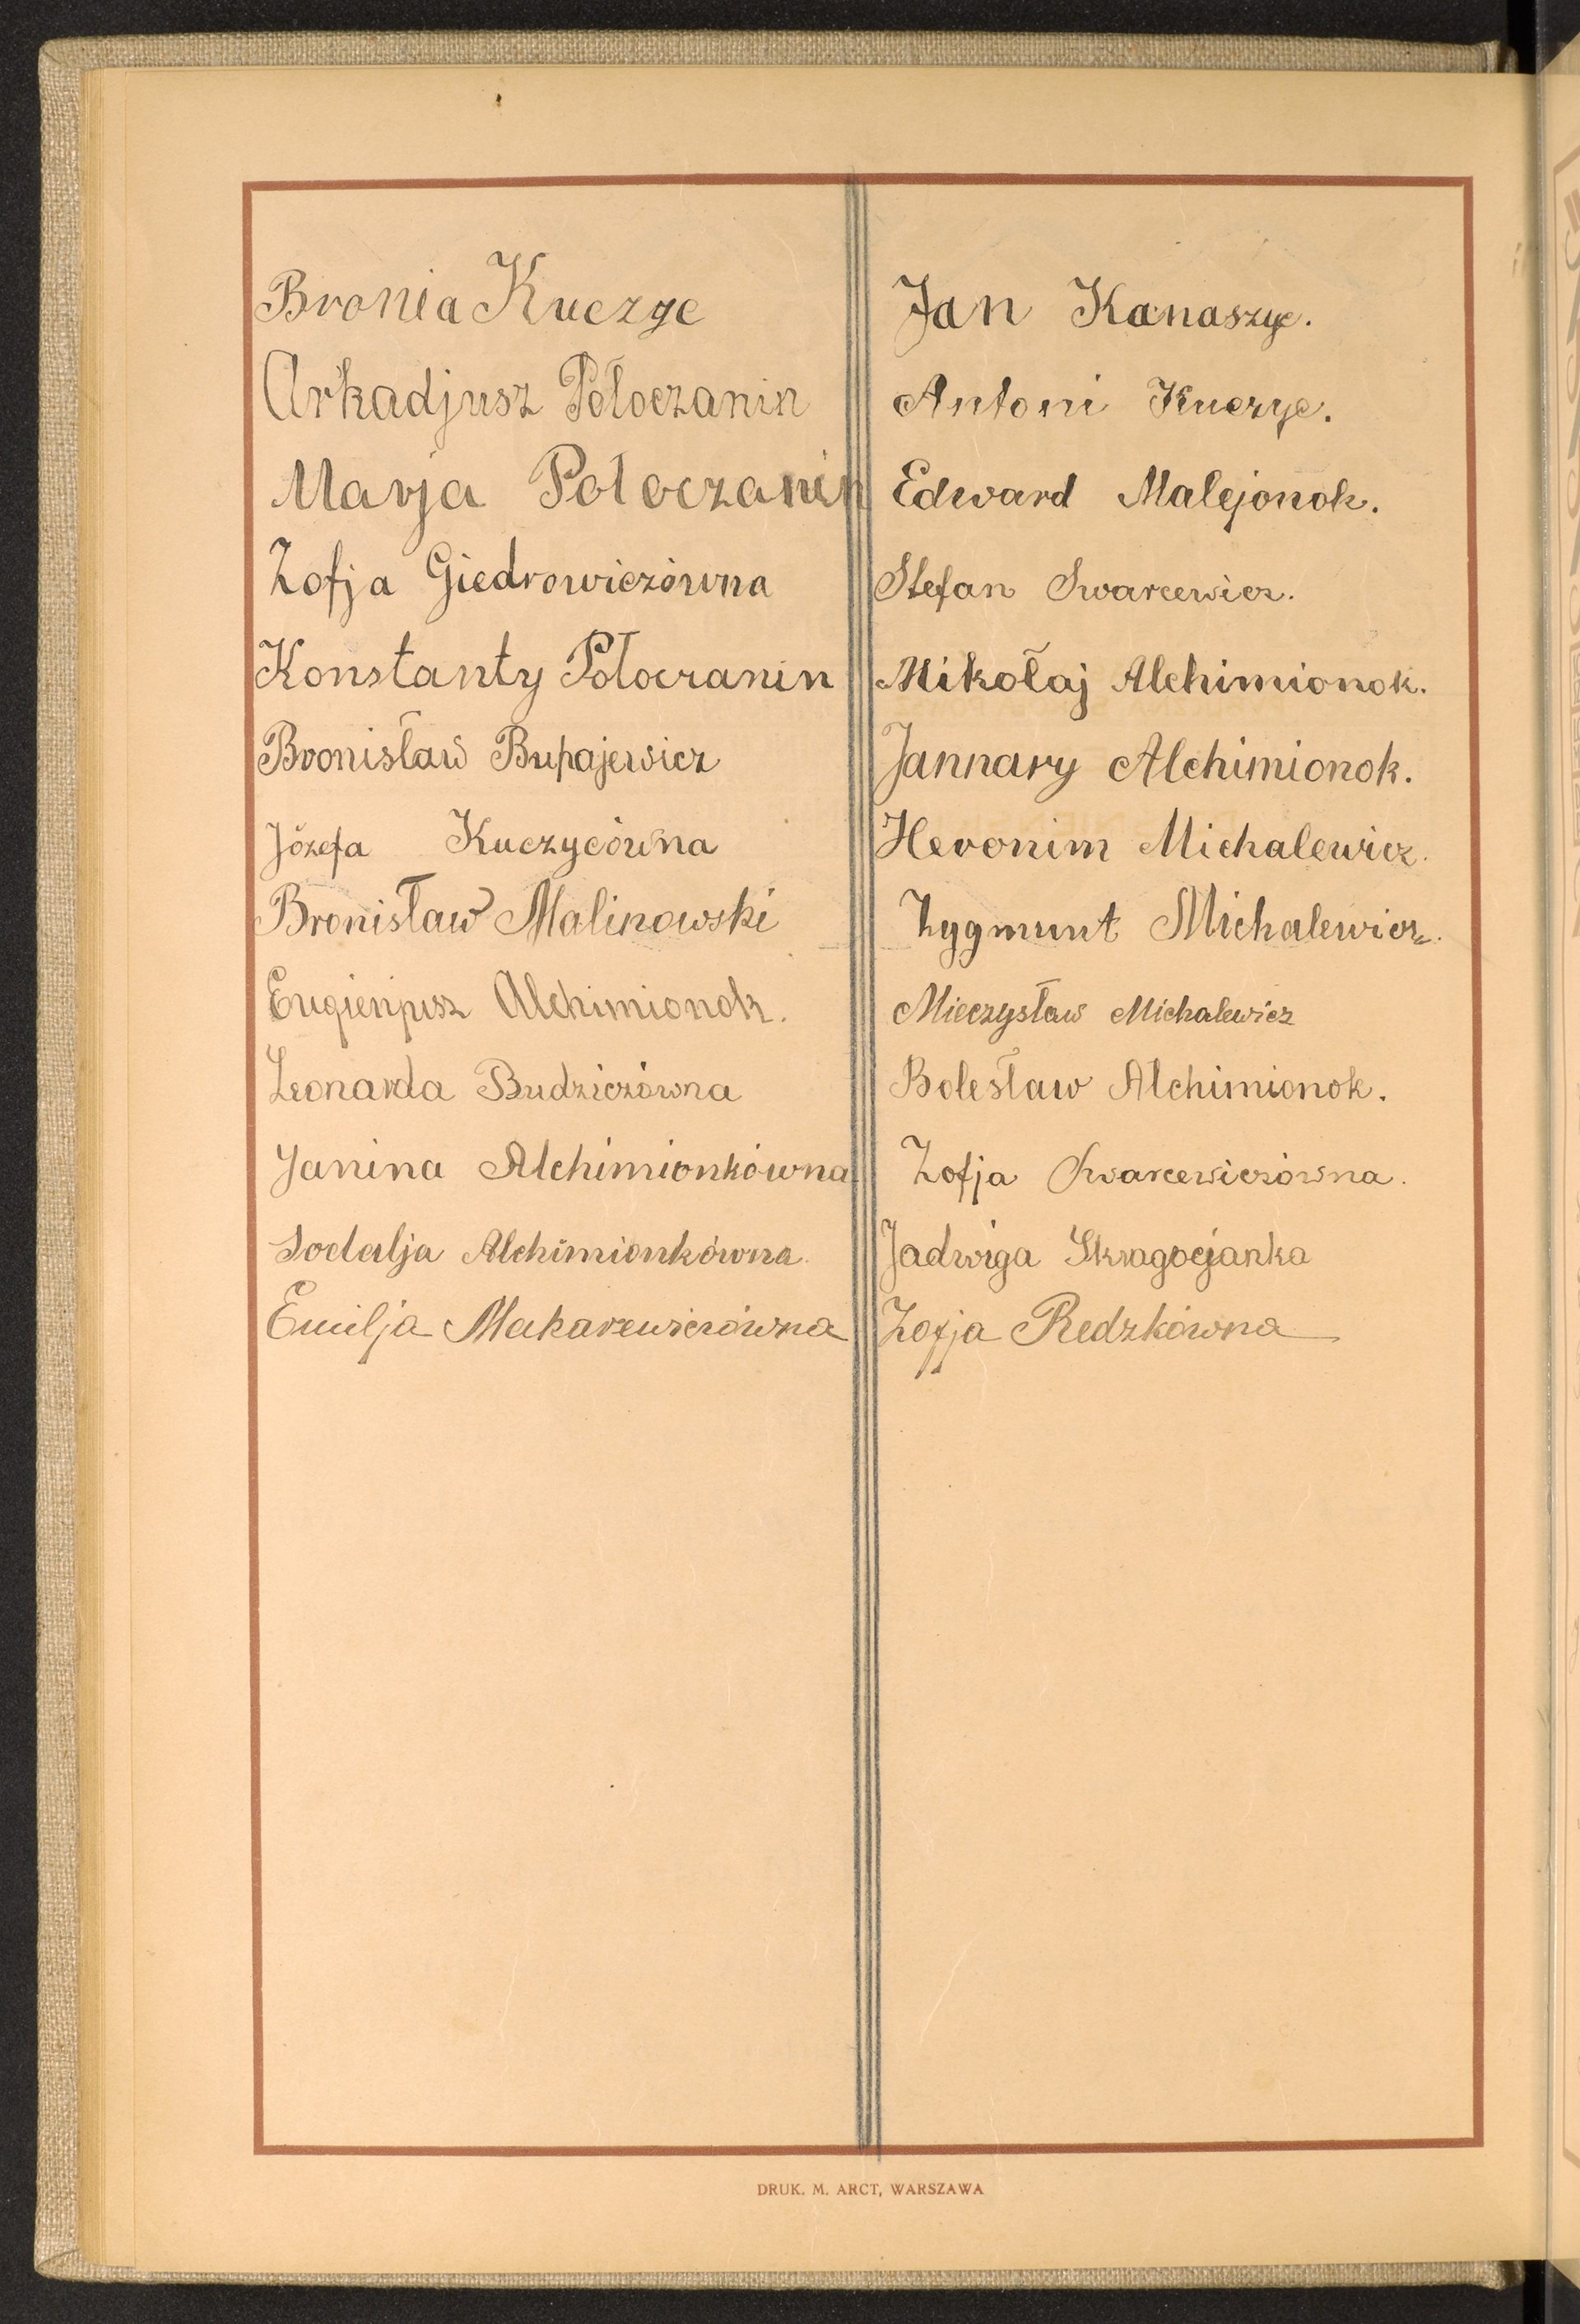 Bronia Kuczyc
Arkadjusz Połoczanin
Marja Połoczanin
Zofja Giedrowiczówna
Konstanty Połoczanin
Bronisław Bupajewicz
Józefa Kuczycówna
Bronisław Malinowski
Eugienjusz Alchimionok.
Leonarda Budziczówna
Janina Alchimionkówna
Alchimionkówna.
Emilja Makarewiczówna
Jan Kanaszyc.
Antoni Kuczyc.
Edward Malejonok.
Stefan Swarcewicz.
Mikołaj Alchimionok.
Jannary Alchimionok.
Heronim Michalewicz.
Zygmunt Michalewicz.
Mieczysław Michalewicz
Bolesław Alchimionok.
Zofja Swarcewiczówna.
Jadwiga
Zofja Redzkówna
DRUK. M. ARCT, WARSZAWA